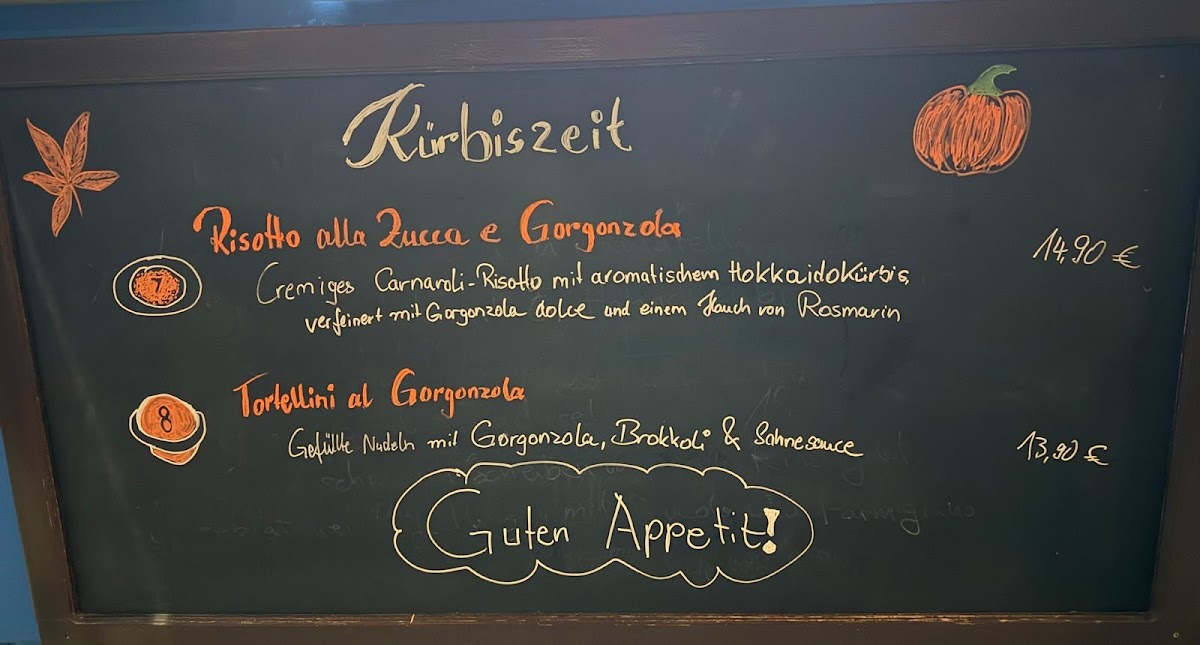 Kürbiszeit
Risotto alla Zucca e Gorgonzola
14,90 €
7
Cremiges Carnaroli-Risotto mit aromatischem Hokkaidokürbis,
verfeinert mit Gorgonzola dolce und einem Hauch von Rosmarin
Tortellini al Gorgonzola
8
Gefüllte Nudeln mit Gorgonzola, Brokkoli & Sahnesauce
13,90 €
Guten Appetit!